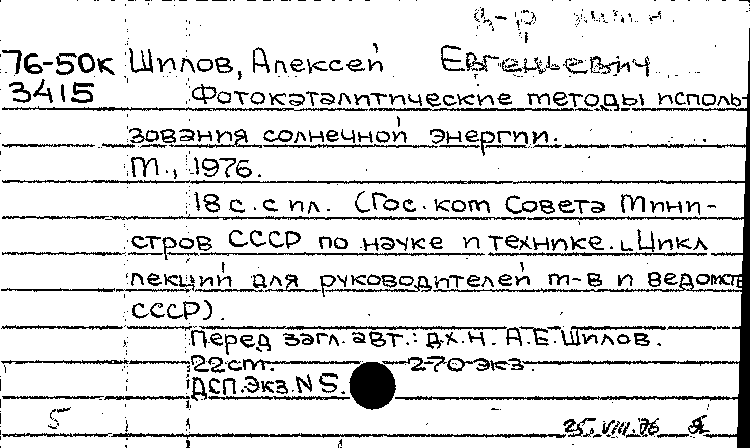 д-р хим. н.
76-50к Шилов, Алексей Евгеньевич
3415 Фотокаталитические методы исполь-
зования солнечной энергии.
М., 1976.
18 с. с ил. (Гос. ком Совета Мини-
стров СССР по науке и технике. Цикл
лекций для руководителей м-в и ведомств
СССР).
Перед загл. авт.: д.х.н. А.Е. Шилов.
22 см. 270 экз.
ДСП. Экз. N 5.
5 25.VIII.76